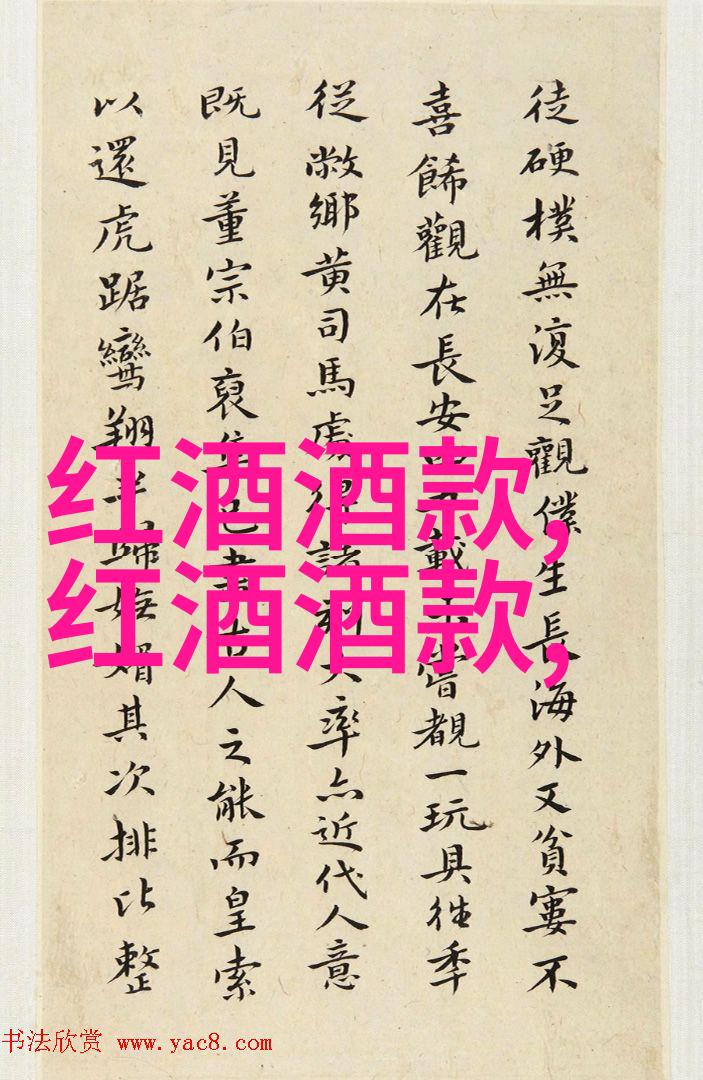 徒硬樸無復足觀僕生長海外又貧窶不
喜餙觀在長安載嘗覩一玩具往季
從敝鄉黄司馬處得諸刻大率亦近代人意
既見董宗伯裒人之能而皇索
以還虎踞鸞翔嫵媚其次排比整
红酒酒款,
红酒酒款,
书法欣赏 www.yac8.com